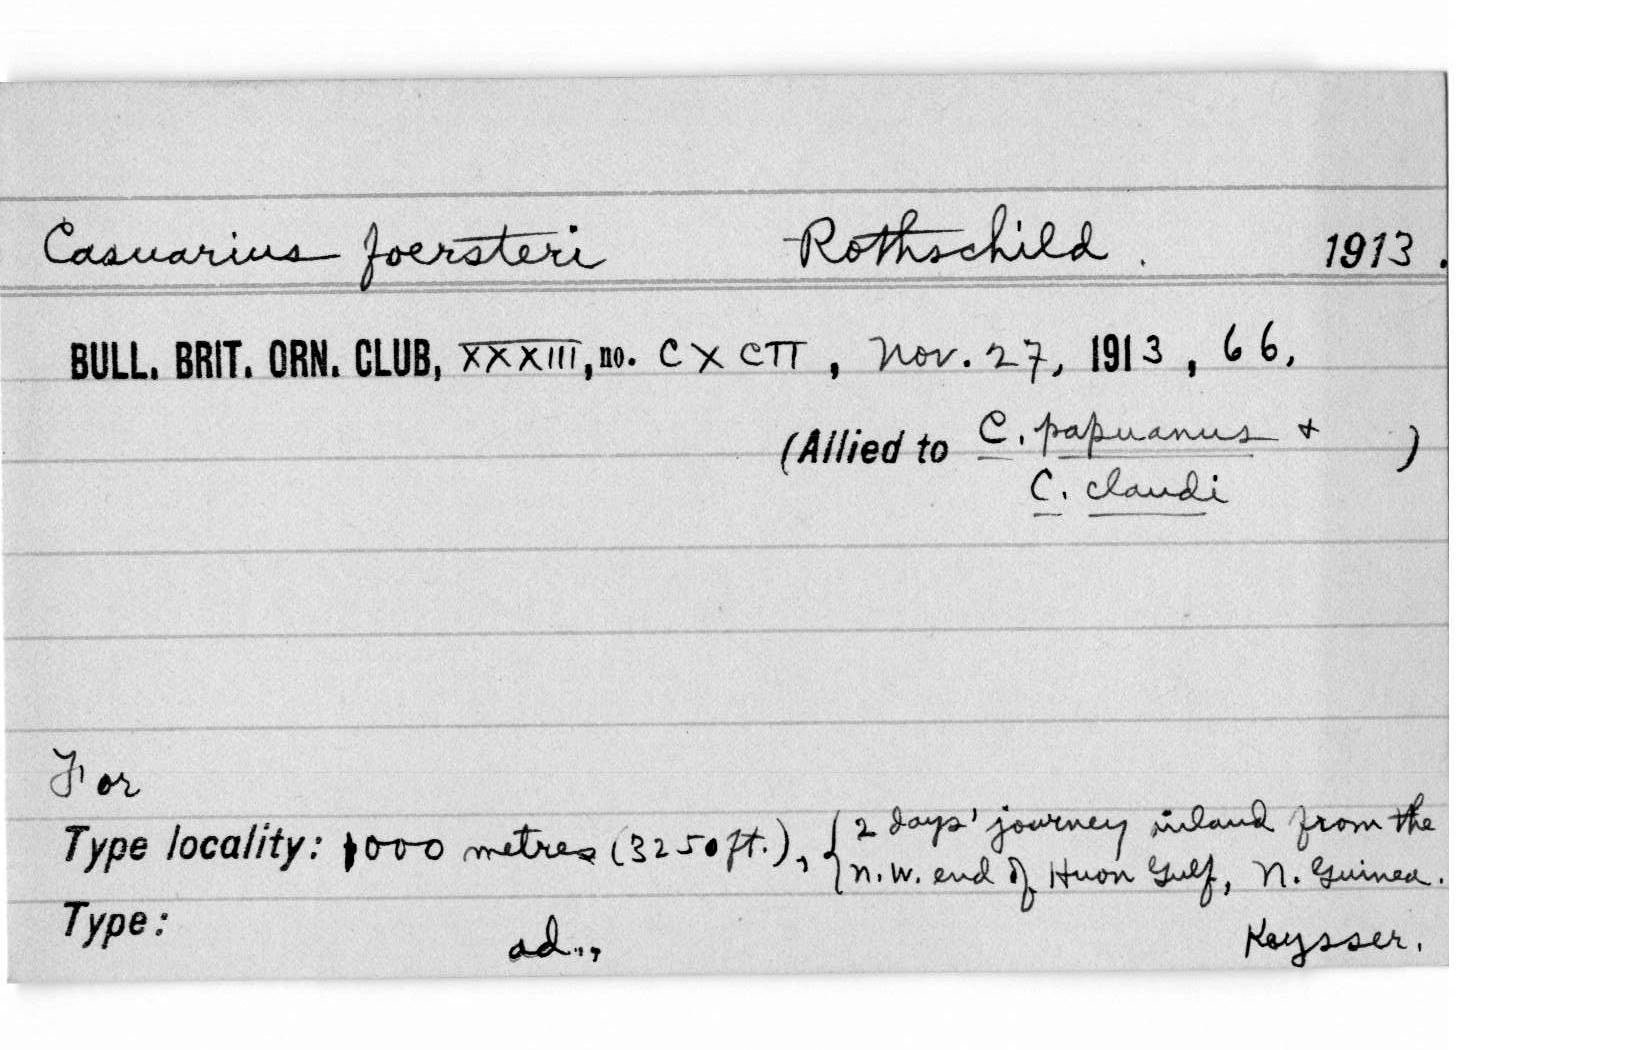 Casuarius foersteri Rothschild. 1913.
BULL. BRIT. ORN. CLUB, XXXIII, no. CXCII, Nov. 27, 1913, 66.
(Allied to C. papuanus + )
C. claudi
For
Type locality: 1000 metres (3250 ft.), { 2 days' journey inland from the
n.w. end of Huon Gulf, N. Guinea.
Type: ad.,, Keysser.